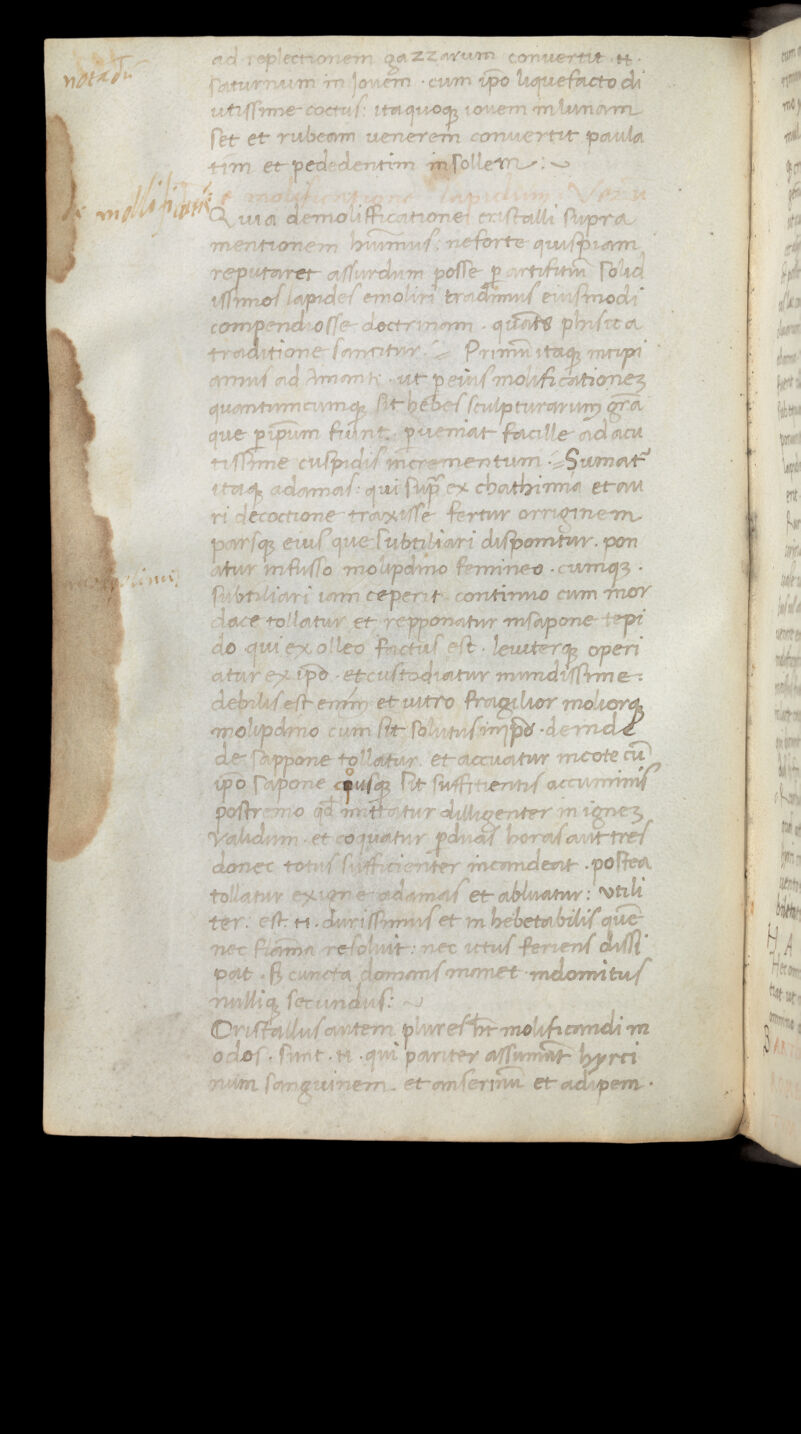 notadū
ad replectionem gazzarum conuertit .n.
saturnum in Jouem . cum ip̄o liquefacto di
utissime coctus: itaquoqꝫ iouem in lunam
set et rubeam uenerem conuertit paula
tim et pededentim in sollem :~
de mollificatiōe
e molificatione lapidum Veru
Quia demolifficatione cristalli supra
mentionem hūimus: neforte quispiam
reputaret assurdum posse ꝑ artifitiū Solid
issimos lapides emoliri tradimus eiusmodi
compendiosse doctrinam . quāte phisica
traditione sancitur :~ Primū itaqꝫ incipi
amus ad amanti . ut ꝑ eius molificationeꝫ
quantumcumqꝫ sit hebes sculpturarum grā
que ꝑ ip̄um fiunt . ꝑueniat facille ad acu
tissime cuspidis incrementum :~ Sumat᷑
itaqꝫ adamas: qui sup̄ ex chathimia et au
ri decoctione traxisse fertur orriginem
parsqꝫ eius que subtiliari disponitur . pon
atur infusso molipdino femineo . cumqꝫ .
subtiliari iam ceperit . continuo cum mor
dace tollatur et repponatur insapone tepi
do qui ex olleo factus est . leuiterqꝫ operi
atur ex ip̄o . et custodiatur mundissime :
debilis est enim et uitro fragilior moliorqꝫ
molipdino cum sit solutus in ip̄o . deinde
de sappone tollatur . et accuatur incote cū
ip̄o sapone quousqꝫ sit suffitientis accuminis
postremo qd̄ mittatur dilligenter in igneꝫ
validum . et coquatur ꝑ duas horas aut tres
donec totus sufficienter incandeat . postea
tollatur ex igne adamas et abluatur : vtili
ter : est .n. durissimus et in hebetabilis quē
nec flāma resoluit : nec ictus feriens dissi
pat . S̄ cuncta domans manet indomitus
nulliqꝫ secundus : ~
Cristallus autem plures h̄t molificandi m
odos . sunt .n. qui pariter assumāt hyrci
num sanguinem . et anserinū et adipem .